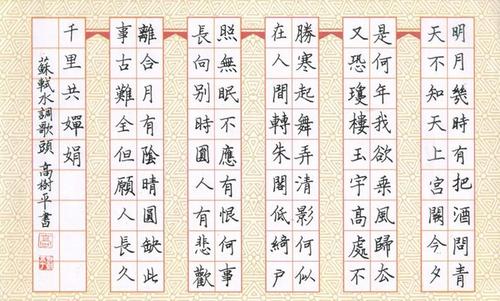 明月幾時有把酒問青
天不知天上宮闕今夕
是何年我欲乘風歸去
又恐瓊樓玉宇高處不
勝寒起舞弄清影何似
在人間轉朱閣低綺戶
照無眠不應有恨何事
長向別時圓人有悲歡
離合月有陰晴圓缺此
事古難全但願人長久
千里共嬋娟
蘇軾水調歌頭 高樹平書